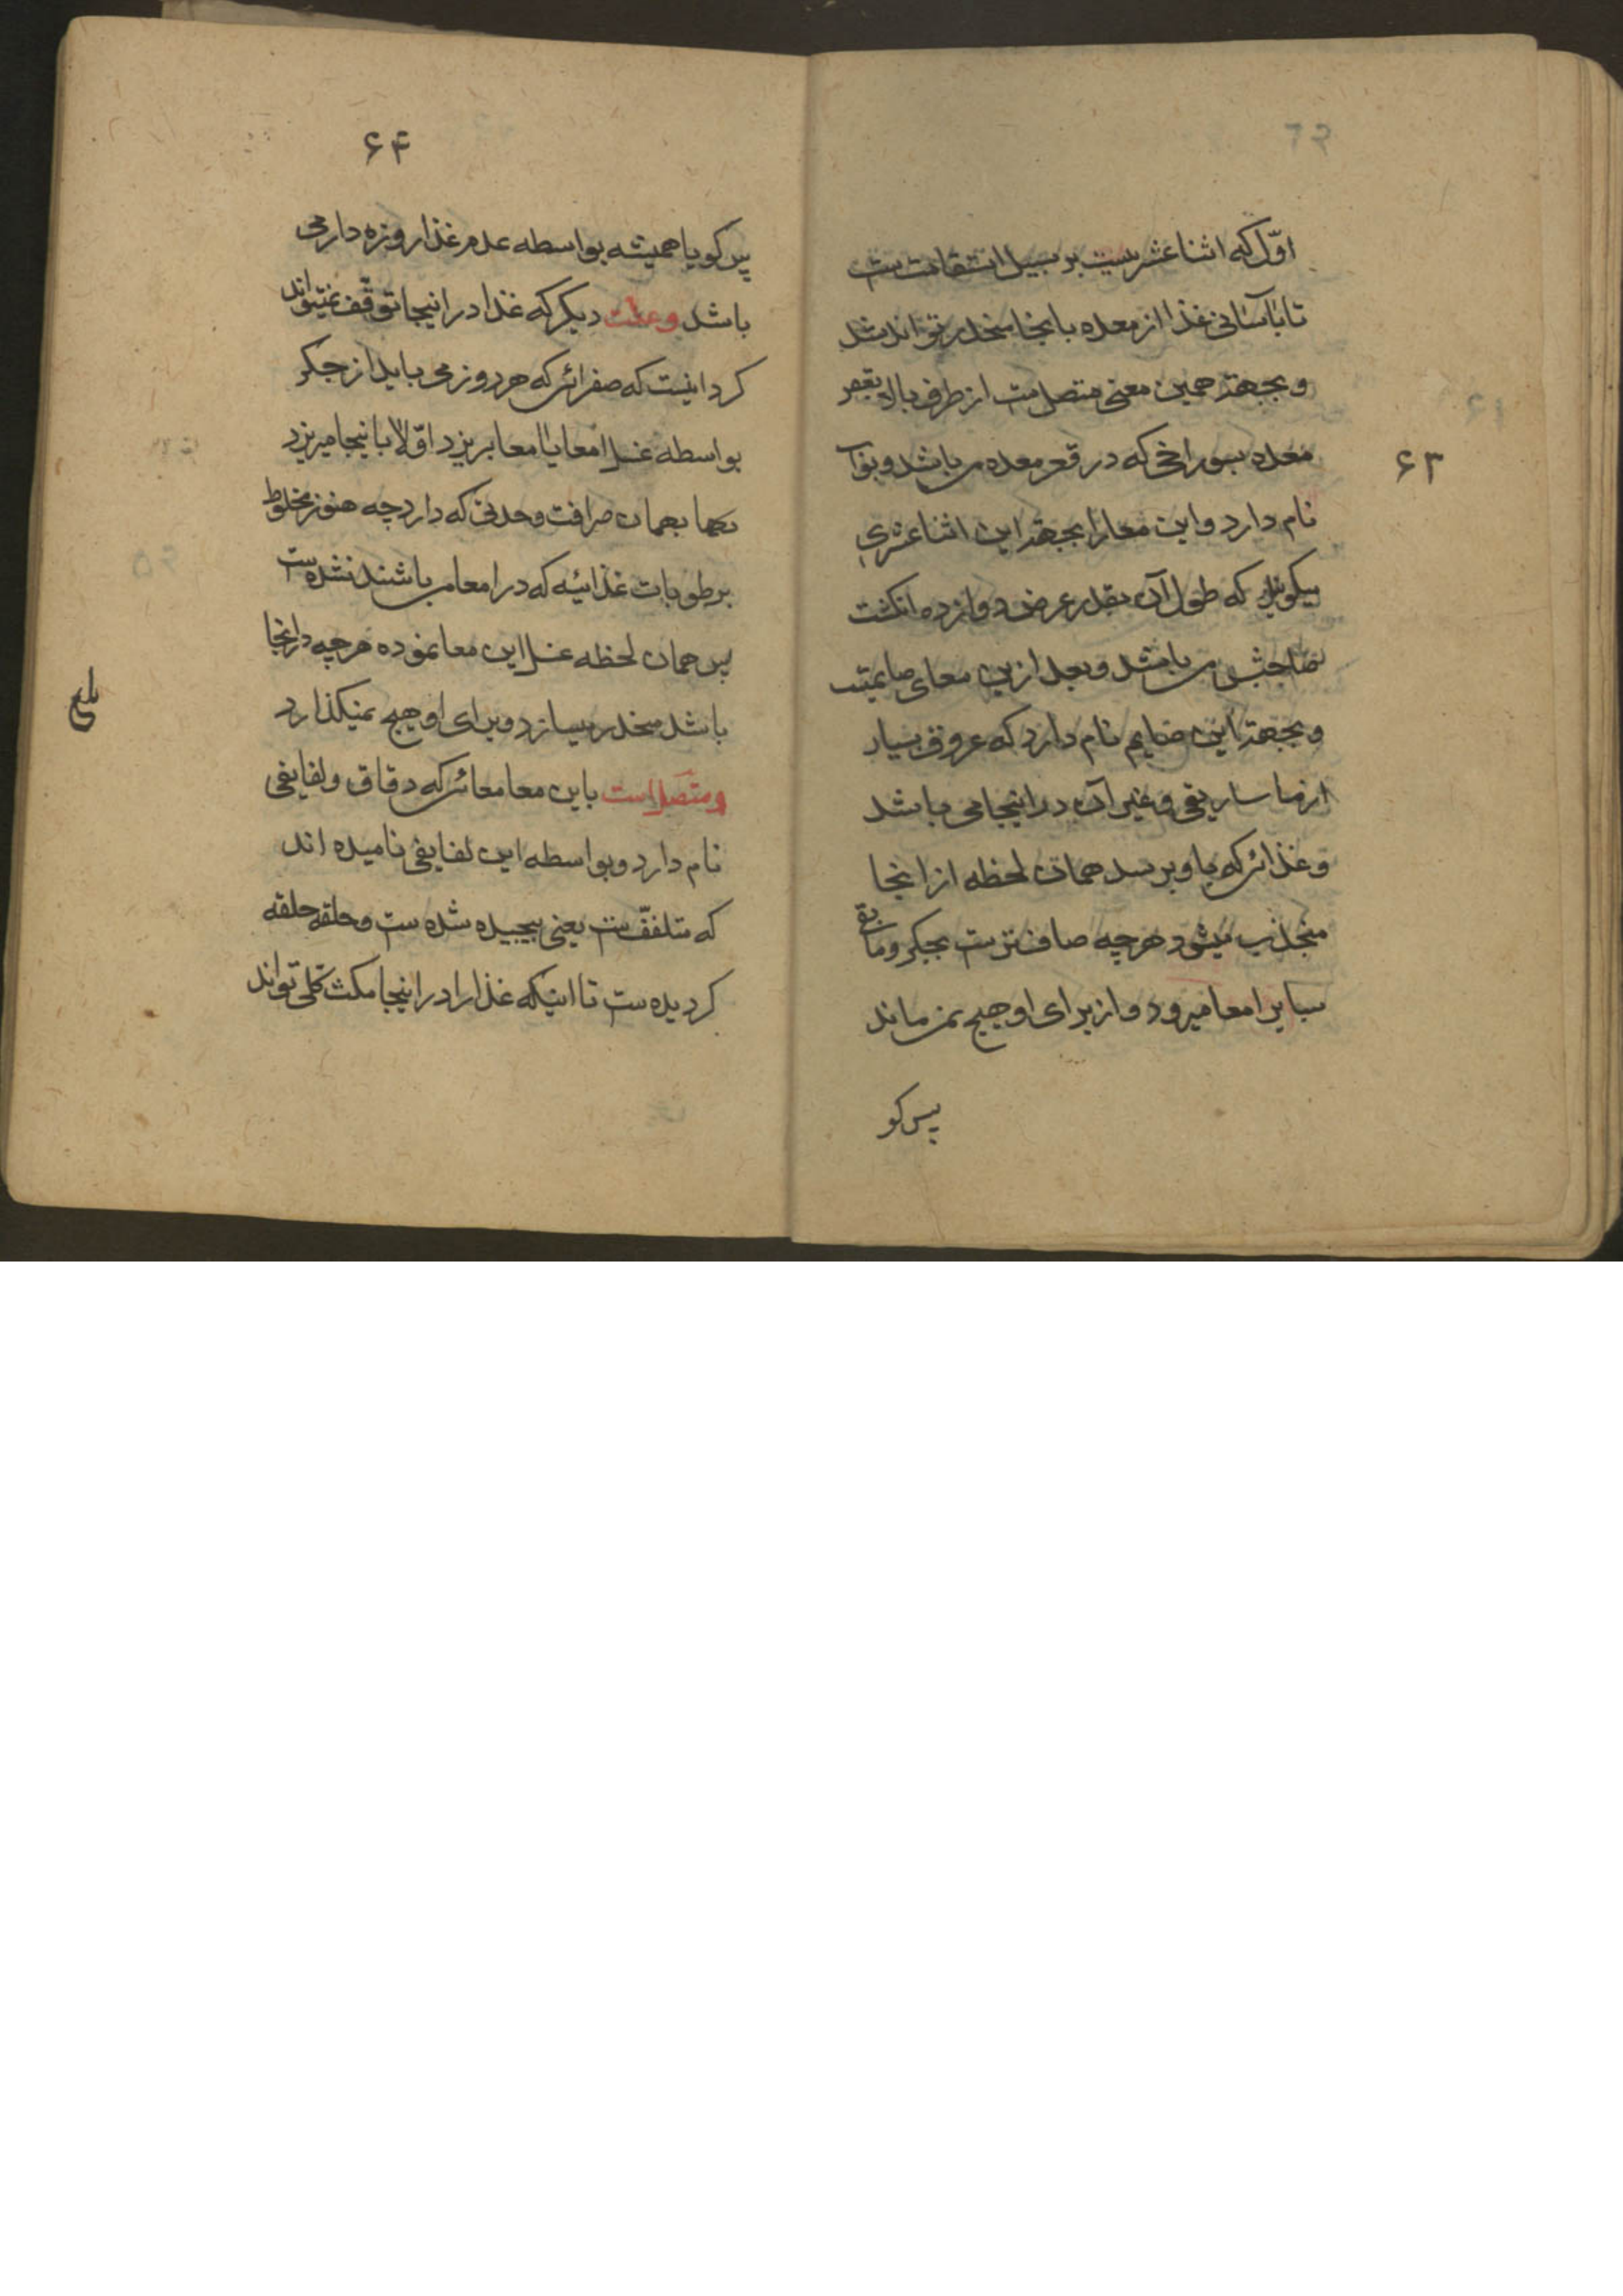 ۶۳
اوّل که اثنا عشریست بر سبیل استقامت ست
تا باآسانی غذا از معده بانجا منحدر تواند شد
و بجهة همین معنی متصل ست از طرف بالا بقعر
معده بسوراخی که در قعر معده می باشد و بواب
نام دارد و این معا را بجهة این اثنا عشری
میکویند که طول آن بقدر عرض دوازده انکشت
صاحبش می باشد و بعد ازین معای صایمست
و بجهة این صایم نام دارد که عروق بسیار
از ماساریقی و غیر آن در اینجا می باشد
و غذائی که باو برسد همان لحظه از انجا
منجذب میشود هرچه صاف ترست بجکر و مابقی
بسایر امعا میرود و از برای او هیچ نمی ماند
پس کو
۶۴
پس کویا همیشه بواسطه عدم غذا روزه دار می
باشد و علت دیکر که غذا در اینجا توقّف نمیتواند
کرد اینست که صفرائی که هر روز می باید از جکر
بواسطه غسل امعا باامعا بریزد اوّلا باینجا میریزد
بهمان صرافت وحدتی که دارد چه هنوز مخلوط
برطوبات غذائیه که در امعا می باشند نشده ست
پس همان لحظه غسل این معا نموده هرچه در انجا
باشد منحدر میسازد و برای او هیچ نمیکذارد
و متصل است باین معا معائی که دقاق و لفایفی
نام دارد و بواسطه این لفایفی نامیده اند
که متلفّف ست یعنی پیچیده شده ست و حلقه حلقه
کردیده ست تا اینکه غذا را در اینجا مکث کلّی تواند
بلغ